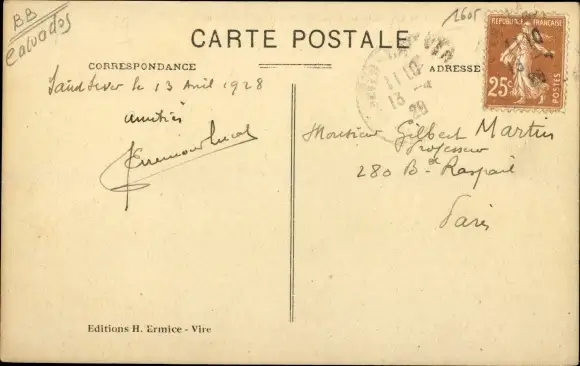 BB
Calvados
2605
CARTE POSTALE
CORRESPONDANCE
ADRESSE
REPUBLIQUE FRANÇAISE
25c
POSTES
11 10
13 - 4
28
le 13 Avril 1928
amitiés
Monsieur Gilbert Martin
Professeur
280 Bd Raspail
Paris
Editions H. Ermice - Vire